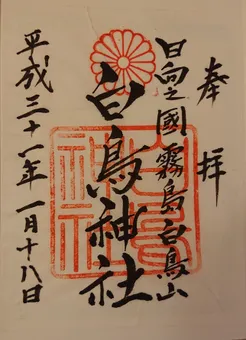 奉拝
日向之國霧島白鳥山
白鳥神社
平成三十一年一月十八日
白鳥神社